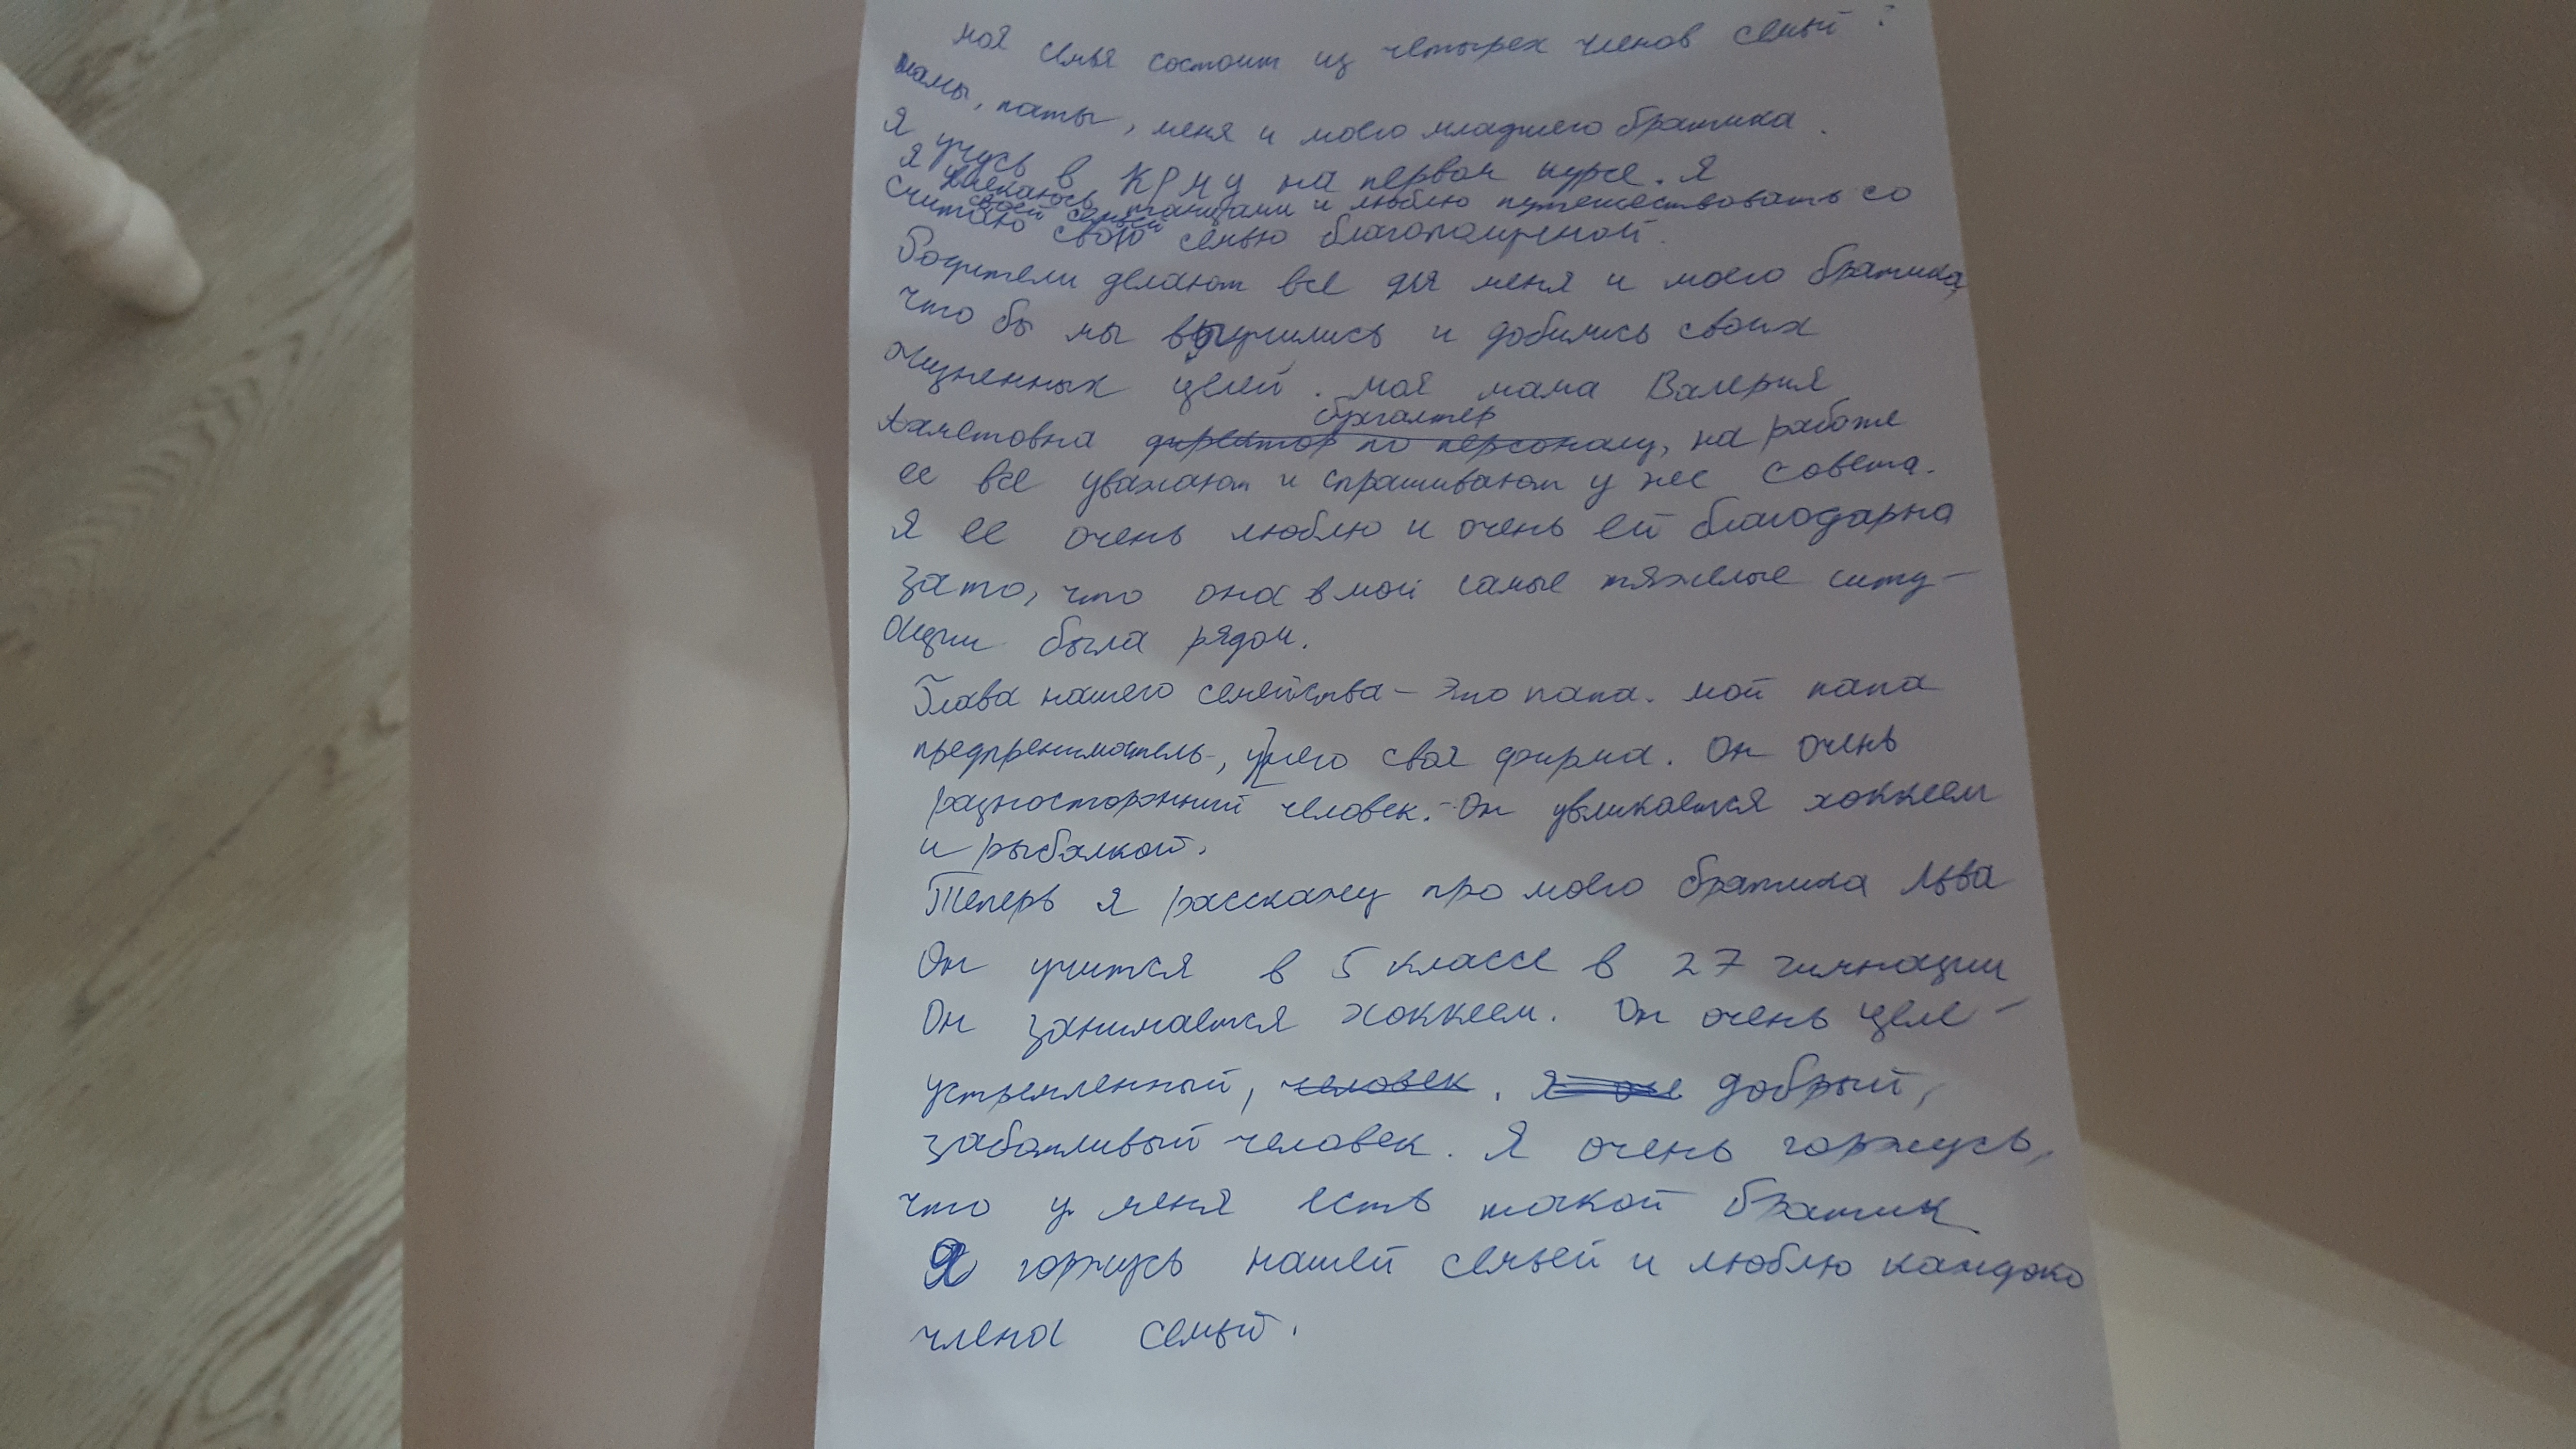 моя семья состоит из четырех членов семьй :
мамы, папы, меня и моего младшего братика.
Я учусь в КРМУ на первом курсе. Я
Я увлекаюсь танцами и люблю путешествовать со
своей семьей
считаю свою семью благополучной.
Родители делают все для меня и моего братика,
что бы мы выучились и добились своих
жизненных целей. моя мама Валерия
бухгалтер
Ахметовна директор по персоналу, на работе
ее все уважают и спрашивают у нее совета.
Я ее очень люблю и очень ей благодарна
зато, что она в мои самые тяжелые ситу-
ации была рядом.
Глава нашего семейства – это папа. мой папа
предпрениматель, у него своя фирма. Он очень
разносторонний человек. Он увликается хоккеем
и рыбалкой.
Теперь я расскажу про моего братика Льва
Он учится в 5 классе в 27 гимнации
Он занимается хоккеем. Он очень целе-
устремленный, человек. Я добрый,
заботливый человек. Я очень горжусь,
что у меня есть такой братик
Я горжусь нашей семьей и люблю каждого
члена семьй.